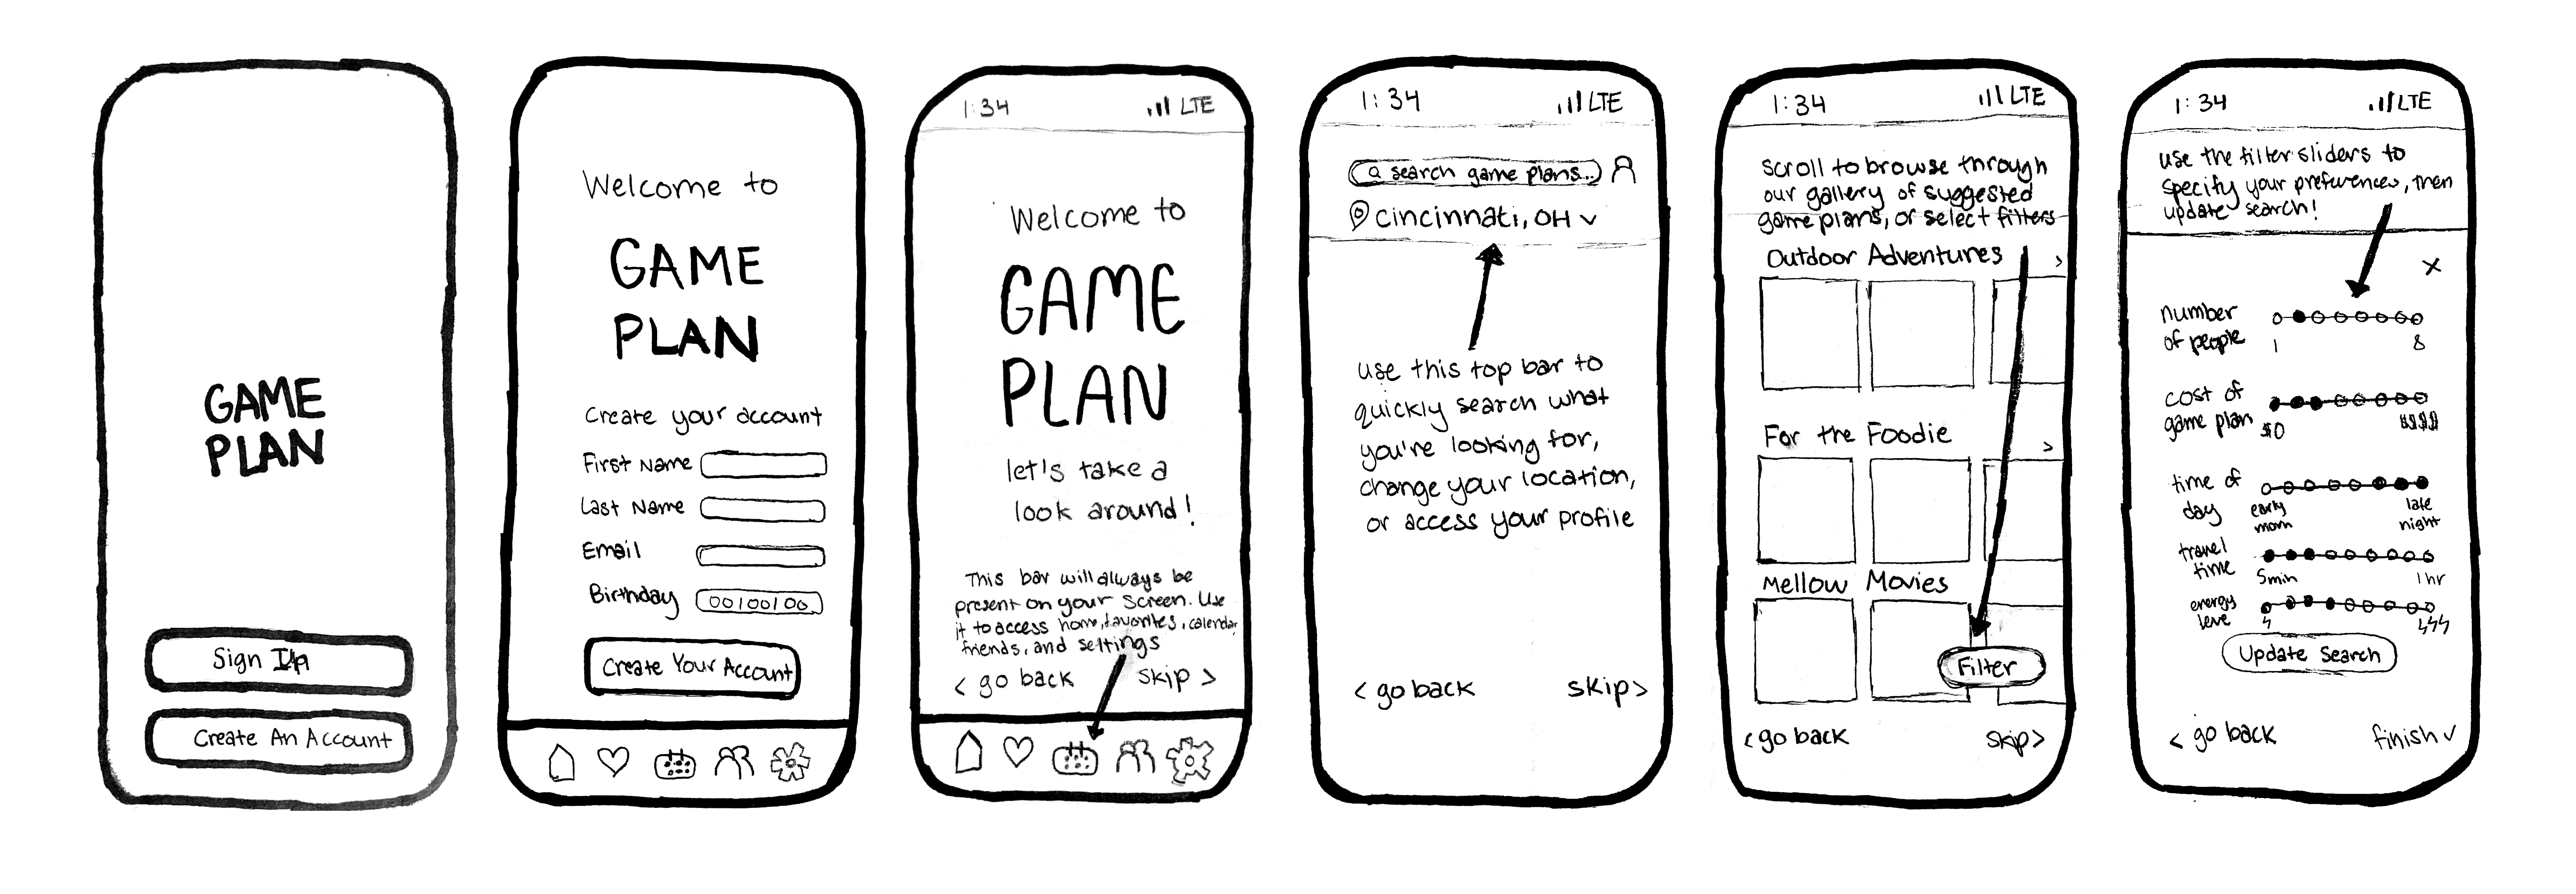 GAME
PLAN
Sign
Create An Account
Welcome to
GAME
PLAN
Create your account
First Name
Last Name
Email
Birthday 00100100
Create Your Account
1:34 LTE
Welcome to
GAME
PLAN
let's take a
look around!
This bar will always be
present on your screen. Use
it to access home, favorites, calendar
friends, and settings
< go back skip >
1:34 LTE
search game plans...
Cincinnati, OH
use this top bar to
quickly search what
you're looking for,
change your location,
or access your profile
< go back skip >
1:34 LTE
scroll to browse through
our gallery of suggested
game plans, or select filters
Outdoor Adventures >
For the Foodie
>
Mellow Movies
Filter
< go back skip >
1:34 LTE
use the filter sliders to
specify your preferences, then
update search!
X
number
of people
1 8
cost of
game plan
$0 $$$$
time of
day
early late
morn night
travel
time
5min 1hr
energy
leve
Update Search
< go back finish